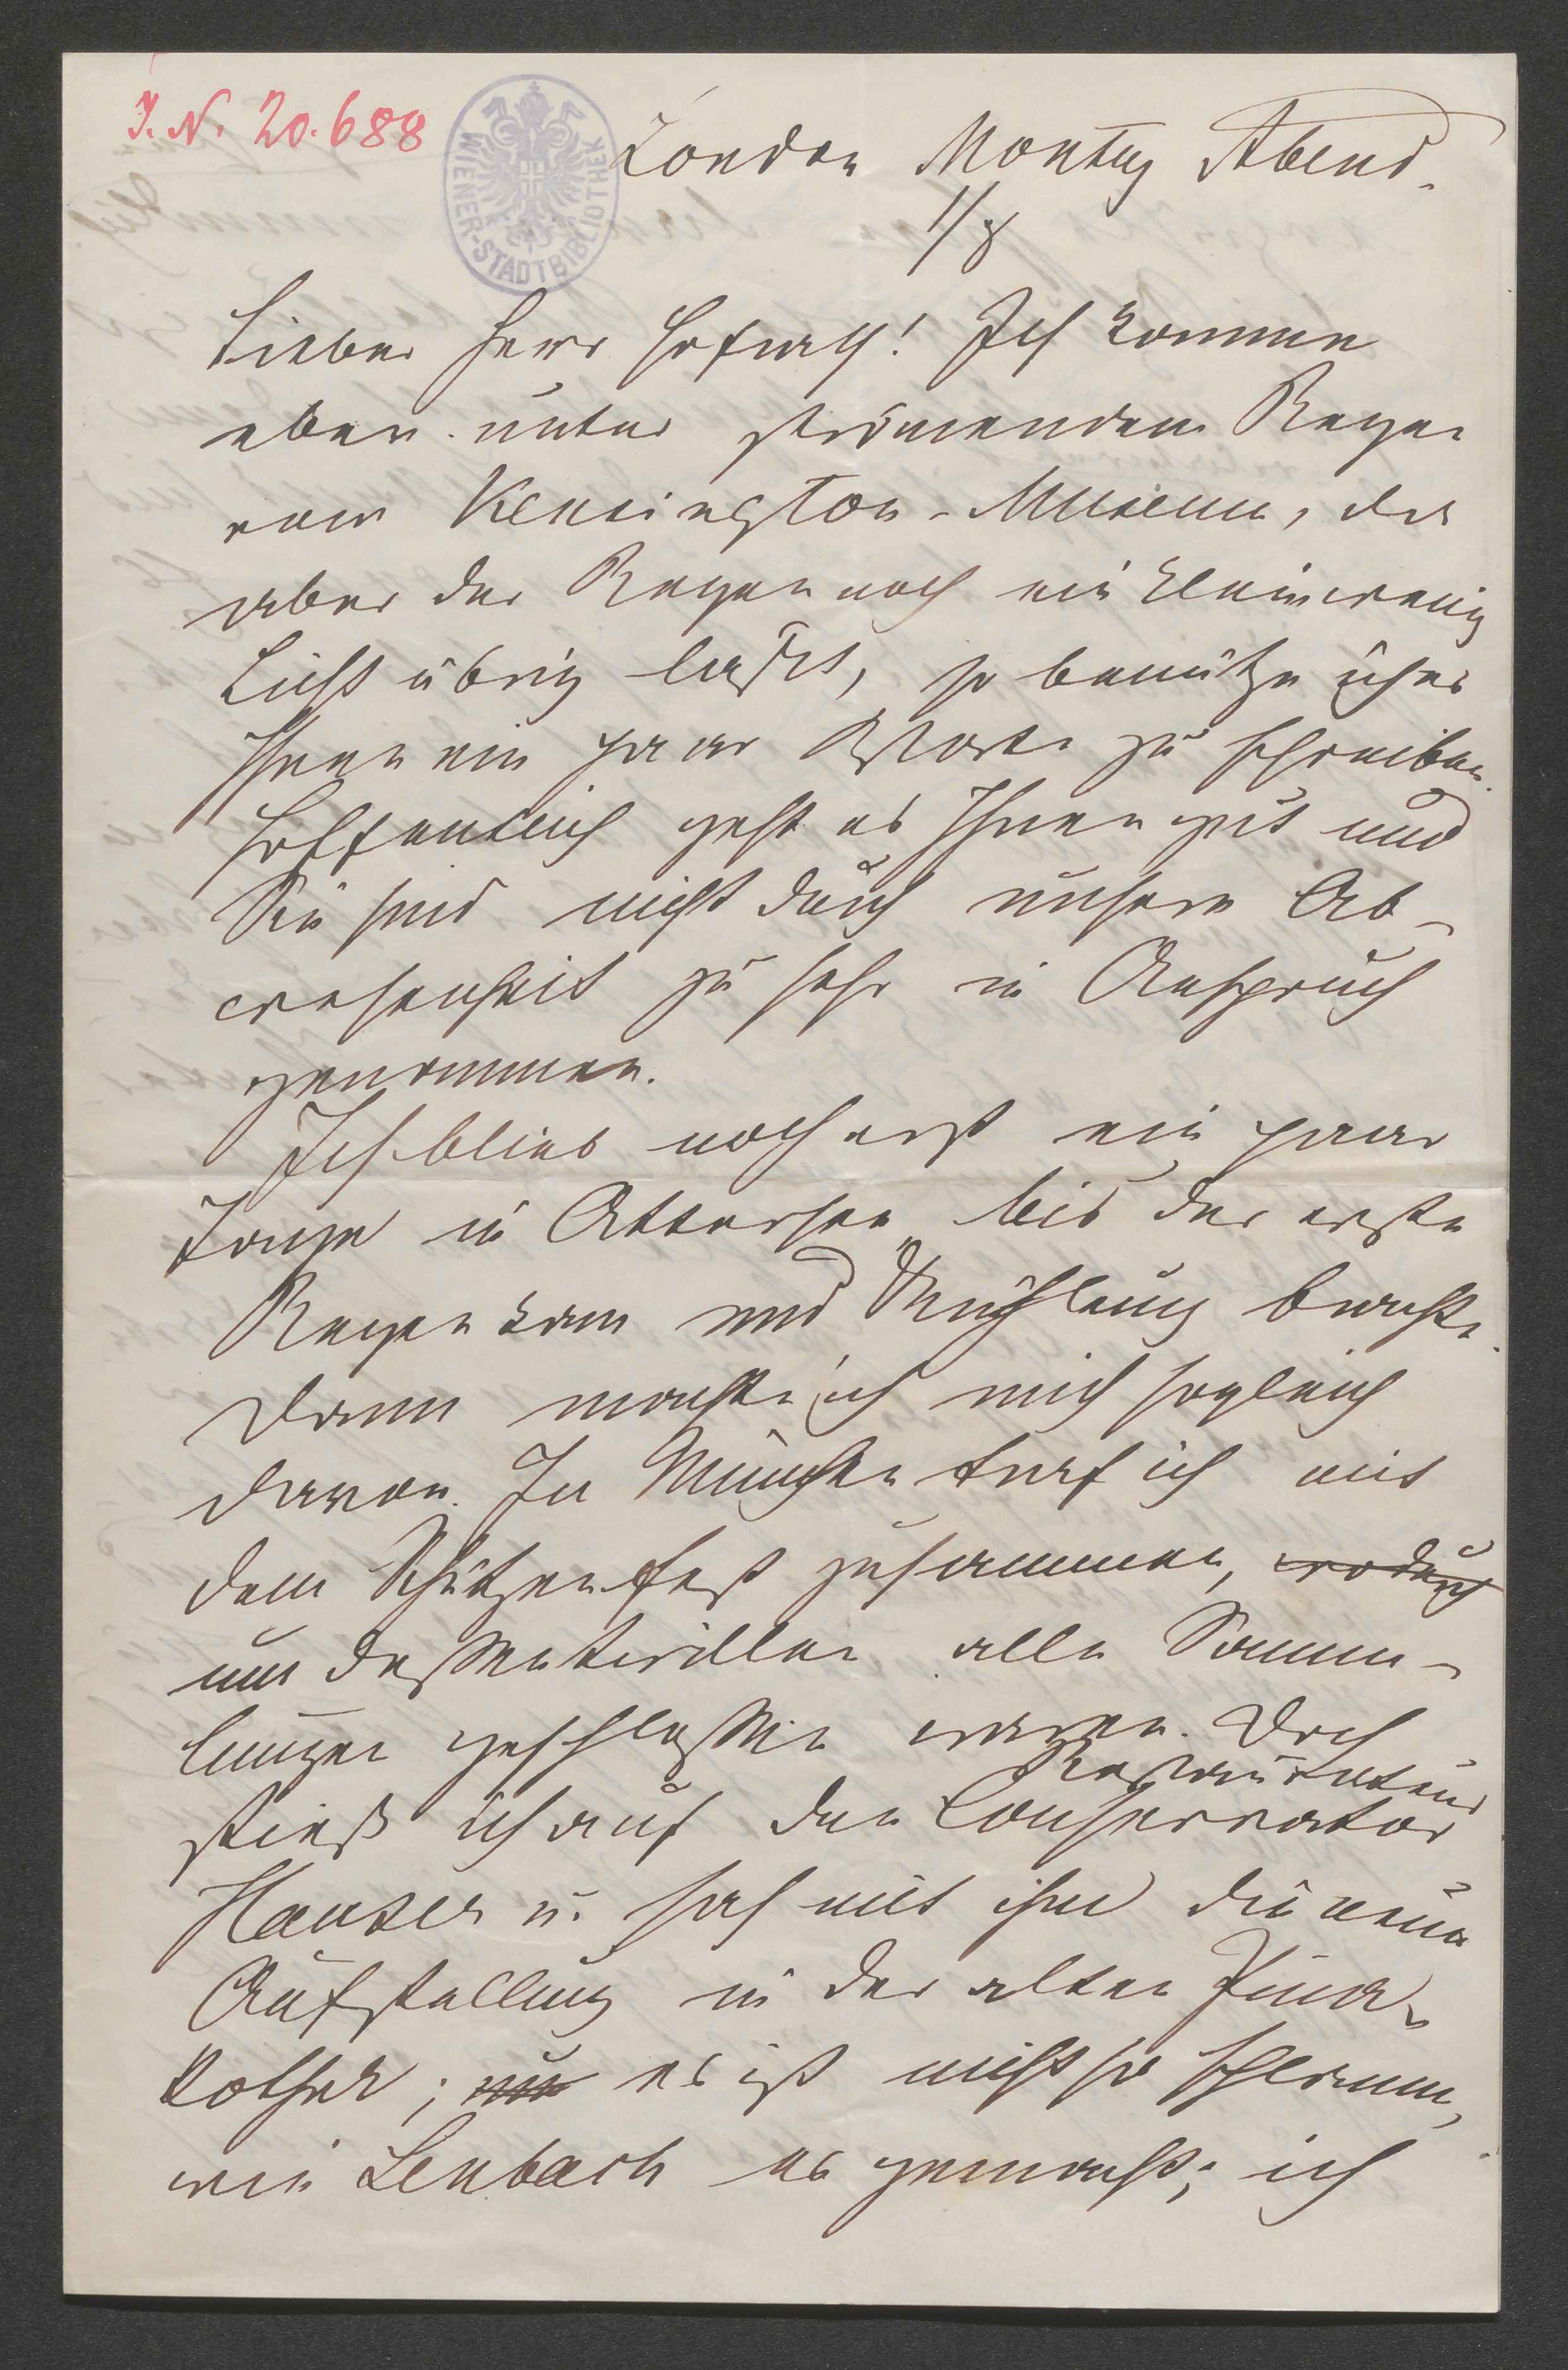 I. N. 20.688
WIENER-STADTBIBLIOTHEK
London Montag Abend.
1/8
Lieber Herr Hofrath! Ich komme
eben unter strömendem Regen
vom Kensington-Museum, da
aber der Regen noch ein klein wenig
Licht übrig läßt, so benütze ich es
Ihnen ein paar Worte zu schreiben.
Hoffentlich geht es Ihnen gut und
Sie sind nicht durch unsere Ab-
wesenheit zu sehr in Anspruch
genommen.
Ich blieb noch erst ein paar
Tage in Attersee bis der erste
Regen kam und Kühlung brachte.
Dann machte ich mich sogleich
davon. In München traf ich mit
dem Schützenfest zusammen, wodurch
um dessentwillen alle Samm-
lungen geschlossen waren. Doch
stieß ich auf den Conservator
Restaurateur
Hauser u. sah mit ihm die neue
Aufstellung in der alten Pina-
kothek; nu es ist nicht so schlimm,
wie Lenbach es gemacht; ich